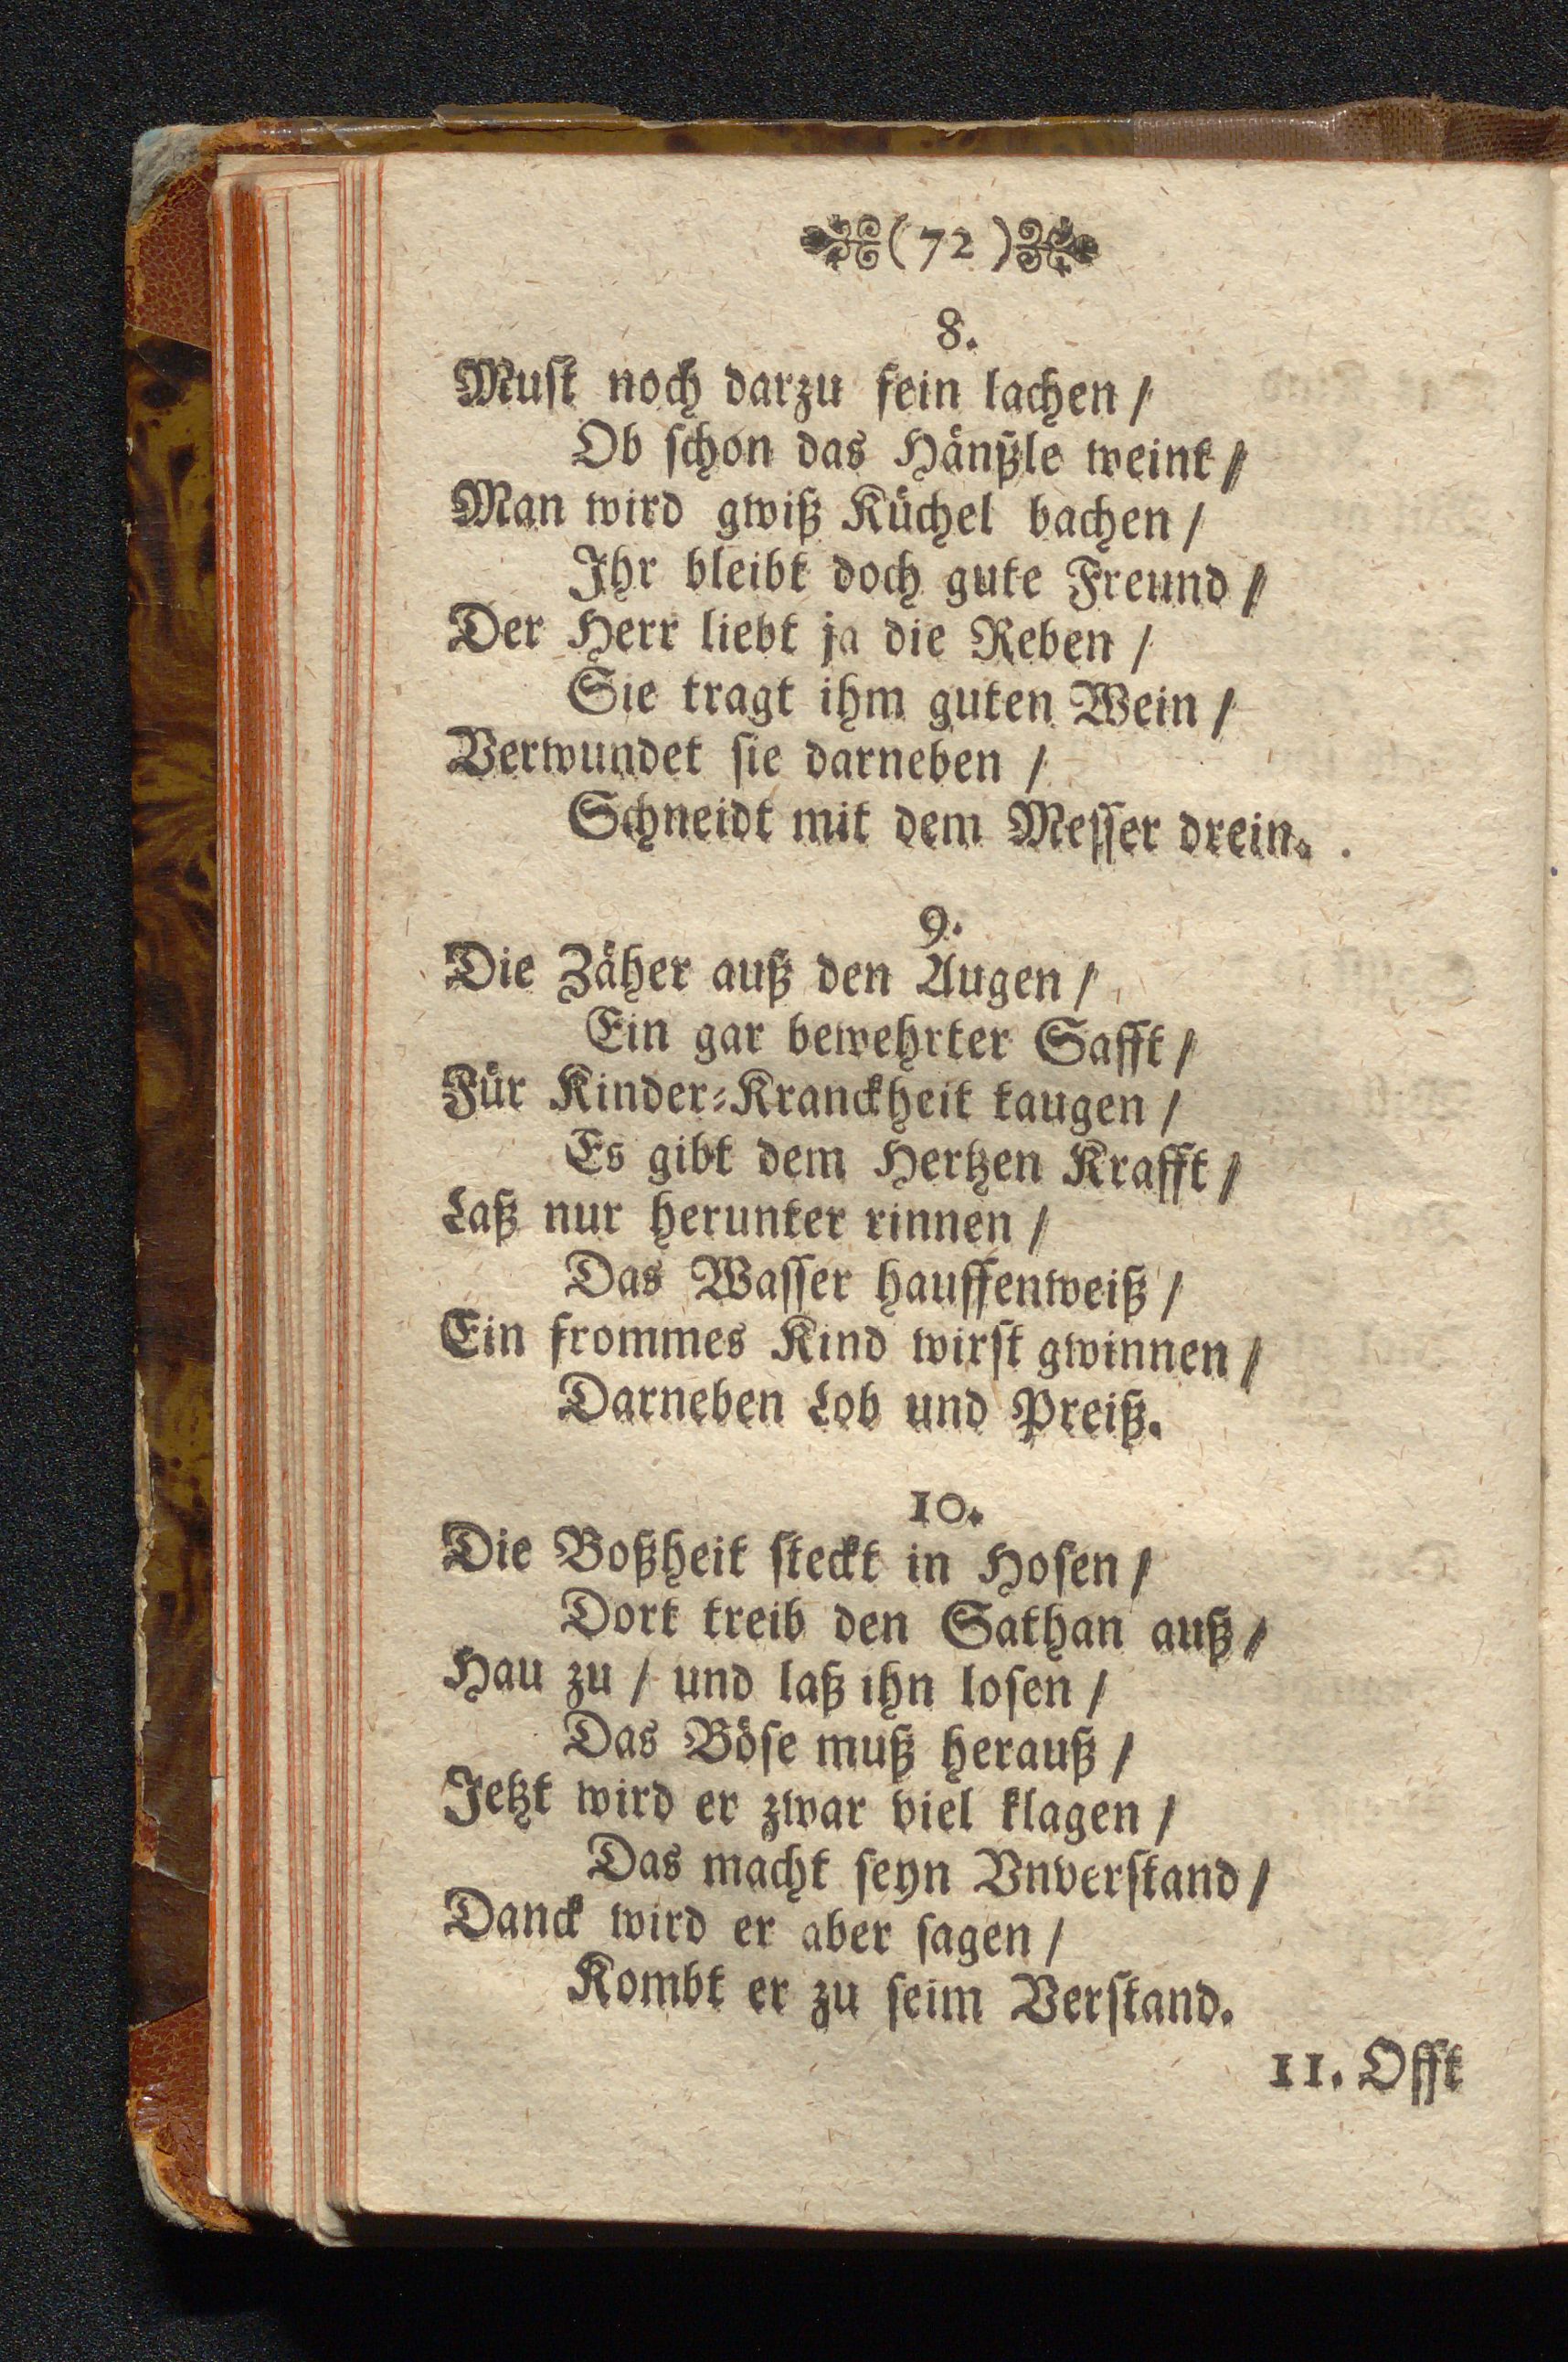 (72)
8.
Must noch darzu fein lachen /
Ob schon das Hänßle weint /
Man wird gwiß Küchel bachen /
Ihr bleibt doch gute Freund /
Der Herr liebt ja die Reben /
Sie tragt ihm guten Wein /
Verwundet sie darneben /
Schneidt mit dem Messer drein.
9.
Die Zäher auß den Augen /
Ein gar bewehrter Safft /
Für Kinder-Kranckheit taugen /
Es gibt dem Hertzen Krafft /
Laß nur herunter rinnen /
Das Wasser hauffenweiß /
Ein frommes Kind wirst gwinnen /
Darneben Lob und Preiß.
10.
Die Boßheit steckt in Hosen /
Dort treib den Sathan auß /
Hau zu / und laß ihn losen /
Das Böse muß herauß /
Jetzt wird er zwar viel klagen /
Das macht seyn Vnverstand /
Danck wird er aber sagen /
Kombt er zu seim Verstand.
11. Offt